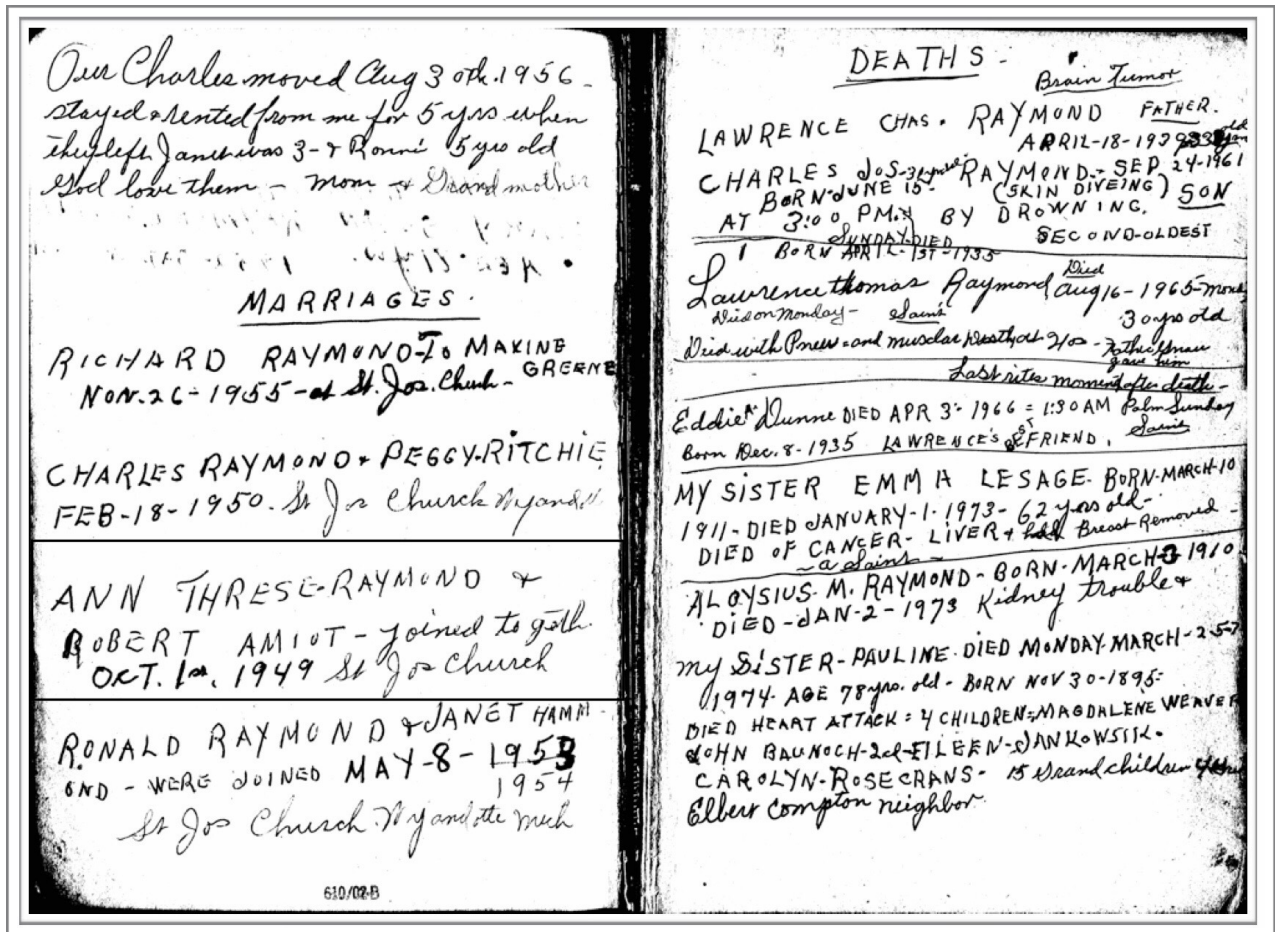 Our Charles moved Aug 30th. 1956 -
stayed & rented from me for 5 yrs when
they left Janet was 3 - & Ronni 5 yrs old
God love them - Mom & Grandmother
MARRIAGES.
RICHARD RAYMOND - To MAXINE
GREENE
NOV. 26 - 1955 - at St. Jos. Church -
CHARLES RAYMOND & PEGGY-RITCHIE
FEB-18-1950. St Jos Church Wyandotte
ANN THRESE-RAYMOND &
ROBERT AMIOT - joined to geth.
OCT. 1st, 1949 St Jos Church
RONALD RAYMOND & JANET HAMM-
OND - WERE JOINED MAY-8-1953
1954
St Jos Church Wyandotte Mich
610/02-B
DEATHS -
Brain Tumor
LAWRENCE CHAS. RAYMOND FATHER.
APRIL-18-1939 old
CHARLES JOS- RAYMOND - SEP 24-1961
BORN JUNE 15 - (SKIN DIVEING) SON
AT 3:00 PM. BY DROWNING.
SUNDAY-DIED SECOND-OLDEST
BORN APRIL-1ST-1935
Lawrence thomas Raymond Died Aug 16-1965-
Died on Monday - Saint 30 yrs old
Died with and muscular at -
gave him
Last rites moment after death -
Eddie Dunne DIED APR 3 - 1966 = 1:30 AM Palm Sunday
Born Dec. 8-1935 LAWRENCE'S FRIEND. Saint
MY SISTER EMMA LESAGE. BORN-MARCH-10
1911-DIED JANUARY-1-1973-62 yrs old -
DIED OF CANCER- LIVER & Breast Removed -
- a Saint -
ALOYSIUS. M. RAYMOND - BORN - MARCH 1910
DIED - JAN-2-1973 Kidney trouble &
my SISTER - PAULINE. DIED MONDAY. MARCH-25-
1974. AGE 78 yrs. old - BORN NOV 30-1895-
DIED HEART ATTACK = 4 CHILDREN = MAGDALENE WEAVER
JOHN BAUNOCH-2nd-EILEEN-JANKOWSIK.
CAROLYN-ROSECRANS- 15 Grand children
Elbert Compton neighbor.